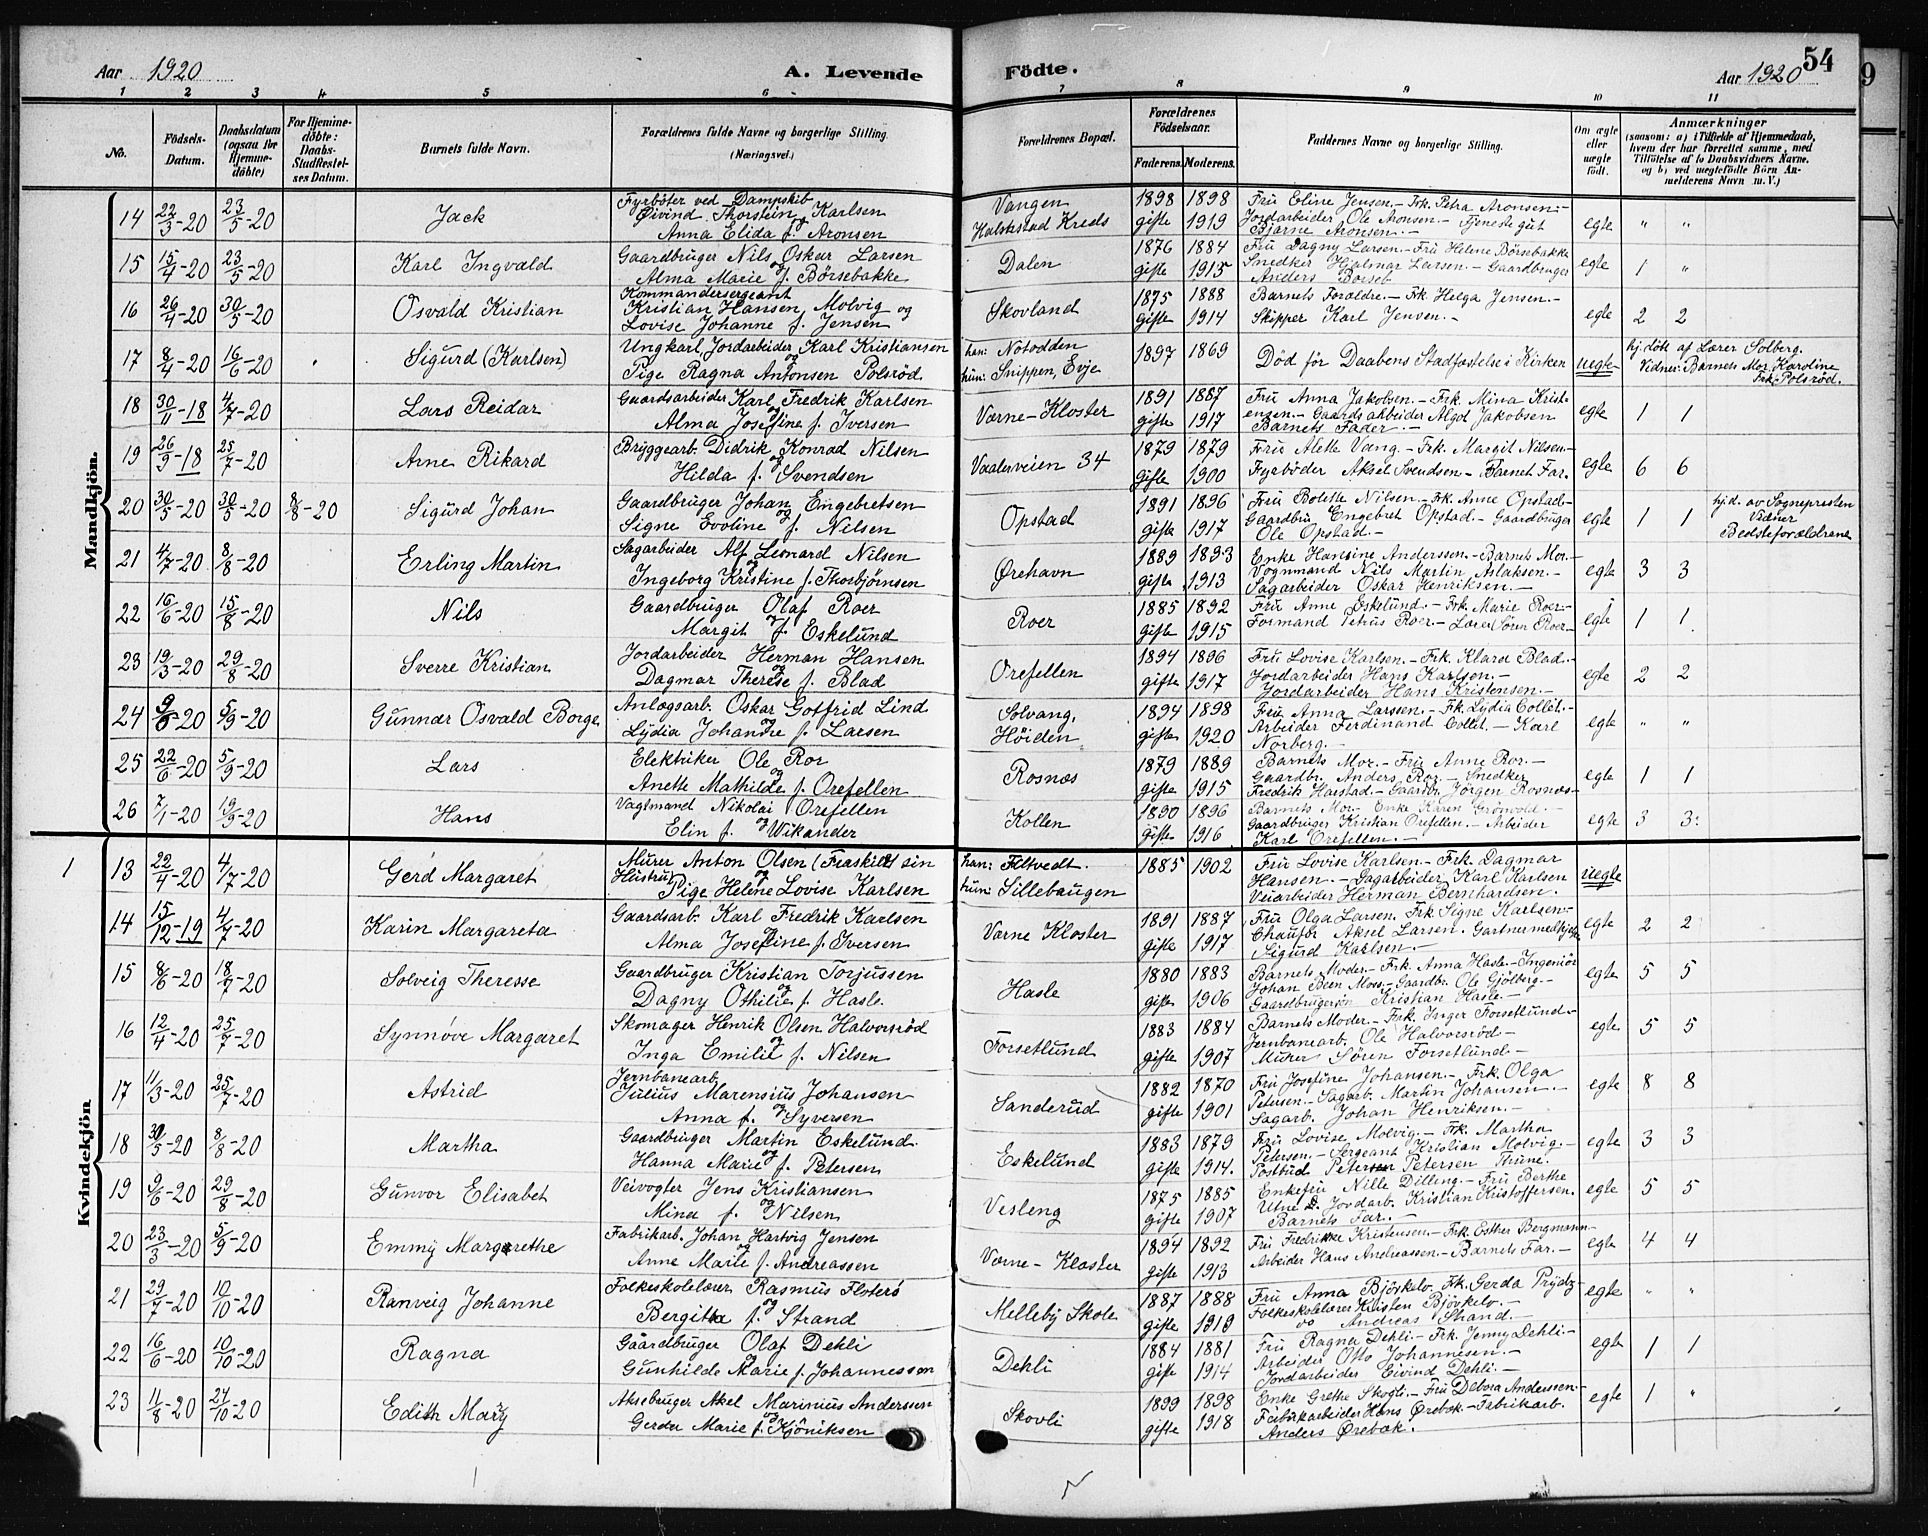 54
9
Aar 1920
A. Levende Födte.
Aar 1920
1 2 3 4 5 6 7 8 9 10 11
No.
Födsels-Datum.
Daabsdatum (ogsaa for Hjemme-döbte)
For Hjemme-döbte: Daabs-Stadfæstel-ses Datum.
Barnets fulde Navn.
Forældrenes fulde Navne og borgerlige Stilling.
(Næringsvei.)
Forældrenes Bopæl.
Forældrenes Födselsaar.
Faderens. Moderens.
Faddernes Navne og borgerlige Stilling.
Om ægte eller uægte födt.
Anmærkninger
(saasom: a) i Tilfælde af Hjemmedaab,
hvem der har forrettet samme, med
Tilföielse af to Daabsvidners Navne.
og b) ved uægtefödte Börn An-
melderens Navn m. V.)
Mandkjön.
14 22/3-20 23/5-20 Jack
Fyrböter ved Dampskib
Øivind Thorstein Karlsen
og
Anna Elida f. Aronsen
Vangen
Halmstad Kreds
1898 1898
gifte 1919
Fru Eline Jensen.- Frk. Petra Aronsen.-
Jordarbeider Ole Aronsen.- Tjenestegut
Bjarne Aronsen.-
egte " "
15 15/4-20 23/5-20 Karl Ingvald
Gaardbruger Nils Oskar Larsen
og
Alma Marie f. Börsebakke
Dalen
1876 1884
gifte 1915
Fru Dagny Larsen.- Fru Helene Börsebakke
Snedker Hjalmar Larsen.- Gaardbruger
Anders Borseb
egte 1 "
16 26/4-20 30/5-20 Osvald Kristian
Kommandersergeant
Kristian Hansen Molvig og
Lovise Johanne f. Jensen
Skovland
1875 1888
Gifte 1914
Barnets Forældre.- Frk Helga Jensen.-
Skipper Karl Jensen.-
egte 2 2
17 8/4-20 16/6-20 Sigurd (Karlsen)
Ungkarl, Jordarbeider Karl Kristiansen
og
Pige Ragna Antonsen Polsröd
han: Notodden
hun: Snippen, Evje
1897 1869
Död för Daabens Stadfæstelse i Kirken
uegte
hj.döbt af Lærer Solberg.
Vidner: Barnets Mor, Karoline
Frk. Polsröd.
18 30/11-18 4/7-20 Lars Reidar
Gaardsarbeider Karl Fredrik Karlsen
og
Alma Josefine f. Iversen
Værne-Kloster
1891 1887
gifte 1917
Fru Anna Jakobsen.- Frk. Mina Krist-
ensen.- Gaardsarbeider Algot Jakobsen
Barnets Fader.-
egte 1 1
19 26/9-18 25/7-20 Arne Rikard
Bryggearb. Didrik Konrad Nilsen
og
Hilda f. Svendsen
Vaalerveien 34
1879 1879
Gifte 1900
Fru Alette Vang.- Frk. Margit Nilsen-
Fyrböder Aksel Svendsen- Barnet Far.
egte 6 6
20 30/5-20 30/5-20 8/8-20 Sigurd Johan
Gaardbruger Johan Engebretsen
og
Signe Evoline f. Nilsen
Opstad
1891 1896
gifte 1917
Fru Bolette Nilsen.- Frk. Anne Opstad-
Gaardbru Engebret Opstad.- Gaardbruger
Ole Opstad.-
egte 1 1
hj.d. av Sognepresten
Vidner
Bedsteforældrene
21 4/7-20 8/8-20 Erling Martin
Sagarbeider Alf Leonard Nilsen
og
Ingeborg Kristine f. Thorbjörnsen
Ørehavn
1889 1893
gifte 1913
Enke Hansine Anderssen.- Barnets Mor.-
Vognmand Nils Martin Aslaksen.-
Sagarbeider Oskar Henriksen.-
egte 3 3
22 16/6-20 15/8-20 Nils
Gaardbruger Olaf Roer
og
Margit f. Eskelund
Roer
1885 1892
gifte 1915
Fru Anne Eskelund.- Frk. Marie Roer.-
Formand Petrus Roer.- Lærer Sören Roer-
egte 1 1
23 19/3-20 29/8-20 Sverre Kristian
Jordarbeider Herman Hansen
og
Dagmar Therese f. Blad
Orefellen
1894 1896
gifte 1917
Fru Lovise Karlsen.- Frk. Klara Blad.-
Jordarbeider Hans Karlsen.-
Jordarbeider Hans Kristensen.-
egte 2 2
24 9/6-20 5/9-20 Gunnar Osvald Borge
Anlægsarb. Oskar Goffrid Lind
og
Lydia Johandre f. Larsen
Solvang,
Höiden
1894 1898
gifte 1920
Fru Anna Larssen.- Frk. Lydia Collet.-
Arbeider Ferdinand Collet.- Karl
Norberg.-
egte " "
25 22/6-20 5/9-20 Lars
Elektriker Ole Ror
og
Anette Mathilde f. Orefellen
Rosnæs
1879 1889
gifte 1915
Barnets Mor.- Fru Anne Ror.-
Gaardbr. Anders Ror.- Snedker
Fredrik Harstad.- Gaardbr. Jörgen Rosnæs-
egte 1 1
26 7/1-20 19/9-20 Hans
Vagtmand Nikolai Orefellen
og
Elin f. Wikander
Kollen
1890 1896
Gifte 1916
Barnets Mor- Enke Karen Grönvold.-
Gaardbruger Kristian Orefellen.- Arbeider
Karl Orefellen.-
egte 3 3
Kvindekjön
1
13 22/4-20 4/7-20 Gerd Margaret
Murer Anton Olsen (Fraskilt sin
Hustru)
og
Pige Helene Lovise Karlsen
han: Filtvedt.
hun: Sillebaugen
1885 1902
Fru Lovise Karlsen- Frk. Dagmar
Hansen.- Sagarbeider Karl Karlsen
Veiarbeider Herman Bernhardsen.
uegte
14 15/12-19 4/7-20 Karin Margareta
Gaardsarb. Karl Fredrik Karlsen
og
Alma Josefine f. Iversen
Værne Kloster
1891 1887
gifte 1917
Fru Olga Larsen. Frk Signe Karlsen-
Chauför Aksel Larsen. Gartnermedhjelper
Sigurd Karlsen.-
egte 2 2
15 8/6-20 18/7-20 Solveig Theresse
Gaardbruger Kristian Torjussen
og
Dagny Othilie f. Hasle.
Hasle
1880 1883
gifte 1906
Barnets Moder- Frk. Anna Hasle- Ingeniör
Johan Been Moss.- Gaardbr. Ole Gjölberg.-
Gaardbrugersön Kristian Hasle.-
egte 5 5
16 12/4-20 25/7-20 Synnöve Margaret
Skomager Henrik Olsen Halvorsröd
og
Inga Emilie f. Nilsen
Forsetlund
1883 1884
gifte 1907
Barnets Moder- Frk. Inger Forsetlund-
Jernbanearb. Ole Halvorsröd-
Murer Sören Forsetlund-
egte 5 5
17 11/3-20 25/7-20 Astrid
Jernbanearb.
Julius Marensius Johansen
og
Anna f. Syversen
Sanderud
1882 1870
gifte 1901
Fru Josefine Johansen.- Frk. Olga
Petersen.- Sagarb. Martin Johansen.-
Sagarb. Johan Henriksen.-
egte 8 8
18 30/5-20 8/8-20 Martha
Gaardbruger Martin Eskelund.
og
Hanna Marie f. Petersen
Eskelund
1883 1879
gifte 1914.
Fru Lovise Molvig.- Frk. Martha
Petersen.- Sergeant Kristian Molvig.-
Postbud Peter Petersen Thune.
egte 3 3
19 9/6-20 29/8-20 Gunvor Elisabet
Veivogter Jens Kristiansen
og
Mina f. Nilsen
Vesleng
1875 1885
gifte 1907
Enkefru Nille Dilling- Fru Berthe
Utne. Jordarb. Kristian Kristoffersen.
Barnets Far.-
egte 5 5
20 23/3-20 5/9-20 Emmy Margrethe
Fabrikarb. Johan Hartvig Jensen
og
Anne Marie f. Andreassen
Værne-Kloster
1894 1892
gifte 1913
Fru Fredrikke Kristensen- Frk. Esther Bergmann-
Arbeider Hans Andreassen.- Barnets Far.-
egte 4 4
21 29/7-20 10/10-20 Ranveig Johanne
Folkeskolelærer Rasmus Floterö
og
Bergitta f. Strand
Melleby Skole
1887 1888
gifte 1919
Fru Anna Björkelo. Frk. Gerda Prydz-
Folkeskolelærer Kristen Björkelo.-
Andreas Strand.-
egte " "
22 16/6-20 10/10-20 Ragna
Gaardbruger Olaf Dehli
og
Gunhilde Marie f. Johannessen
Dehli
1884 1881
gifte 1914
Fru Ragna Dehli- Frk. Jenny Dehli.-
Arbeider Otto Johannesen.-
Jordarbeider Eivind Dehli.-
egte 1 1
23 11/8-20 24/10-20 Edith Mary
Aksebruger Akel Marinius Anderssen
og
Gerda Marie f. Kjöniksen
Skovli
1899 1898
gifte 1918
Enke Grethe Skogli.- Fru Debora Anderssen-
Fabrikarbeider Hans Ørebæk- Fabrikarb.
Anders Ørebæk.
egte 1 "